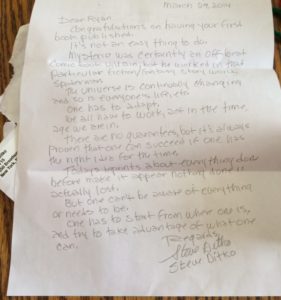 March 29, 2014
Dear
Congratulations on having your first
book published.
It's not an easy thing to do.
Mysterio was certainly an offbeat
comic book villain, but he worked in that
particular fiction/fantasy story world,
Spiderman.
The universe is continually changing
and so is everyone's life, etc.
One has to adapt.
We all have to work, act in the time,
age we are in.
There are no guarantees, but it's always
proved that one can succeed if one has
the right idea for the time.
Today's reprints about everything done
before make it appear nothing done is
actually lost.
But one can't be aware of everything
or needs to be.
One has to start from where one is,
and try to take advantage of what one
can.
Regards,
Steve Ditko
Steve Ditko